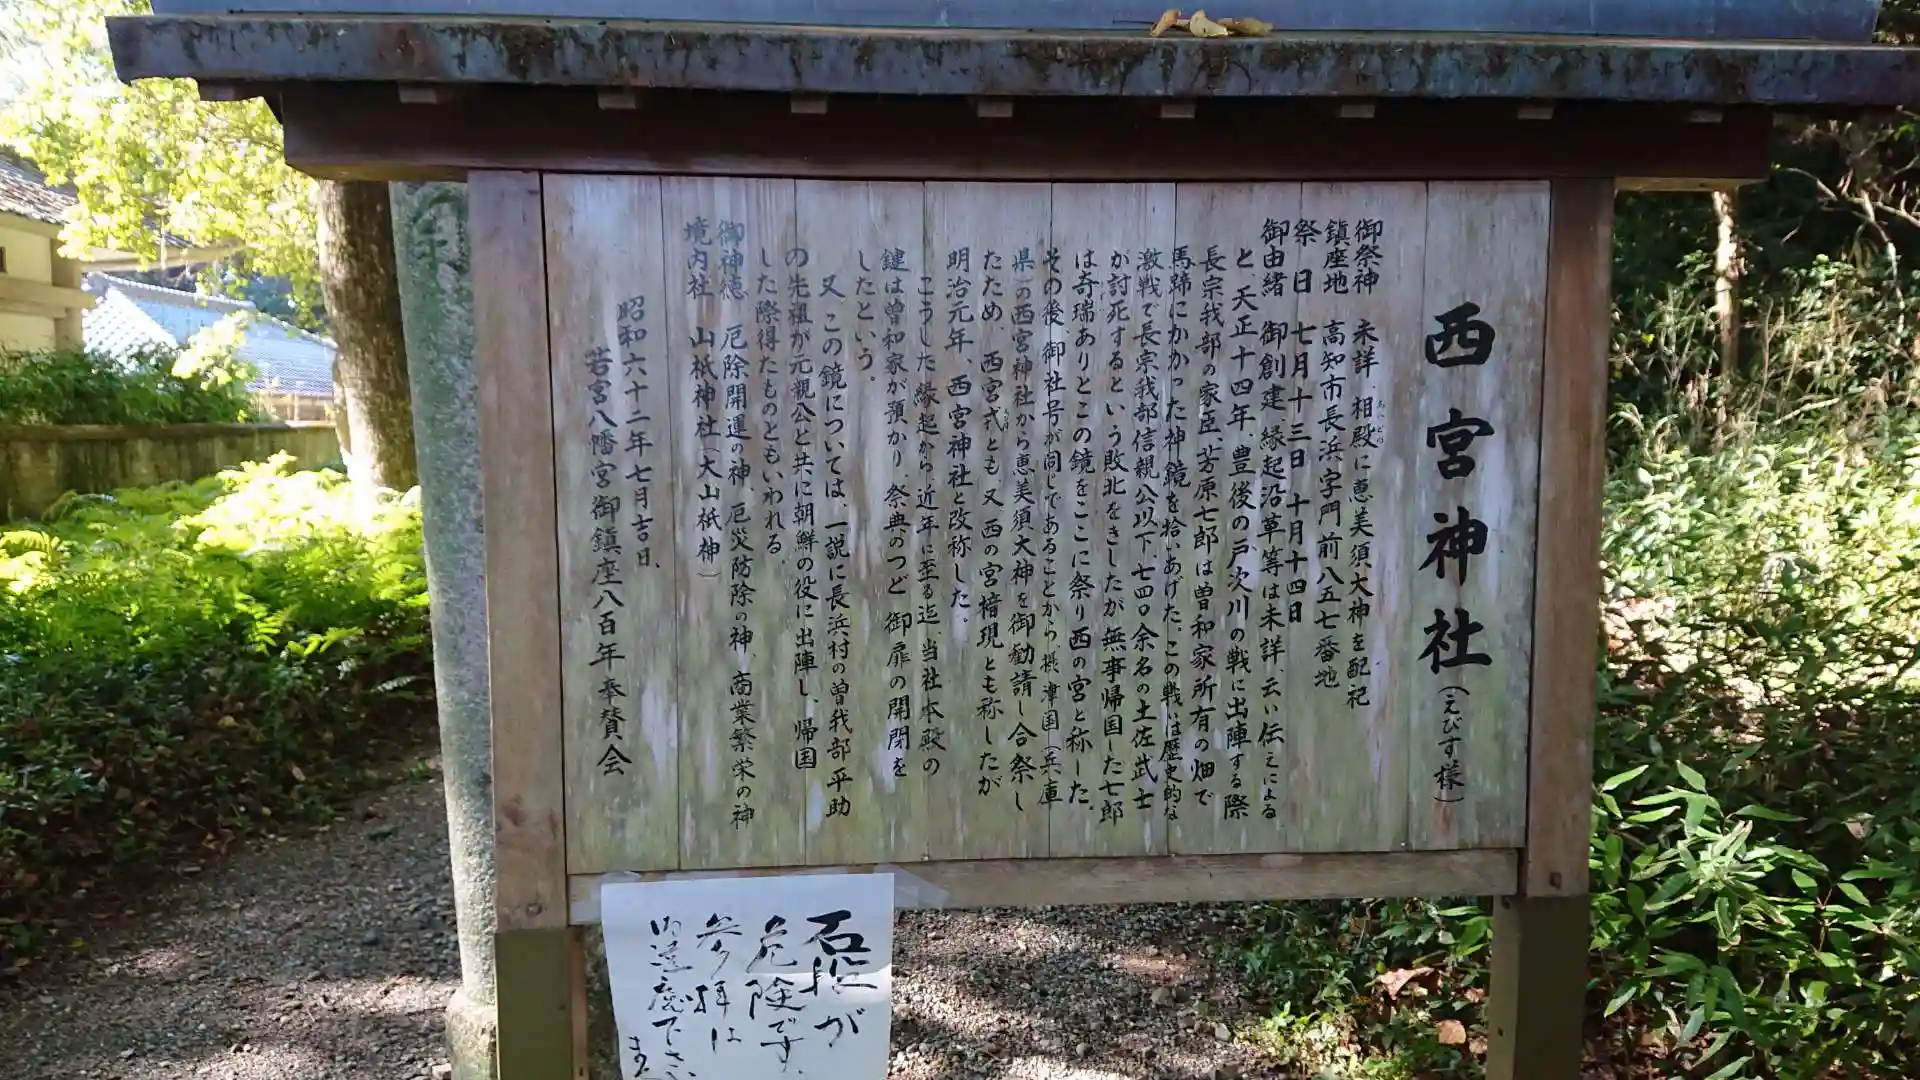 西宮神社（えびす様）
御祭神　未詳、相殿に恵美須大神を配祀
あいどの
鎮座地　高知市長浜字門前八五七番地
祭　日　七月十三日　十月十四日
御由緒　御創建、縁起沿革等は未詳、云い伝えによる
と、天正十四年、豊後の戸次川の戦に出陣する際
長宗我部の家臣、芳原七郎は曽和家所有の畑で
馬蹄にかかった神鏡を拾いあげた。この戦は歴史的な
激戦で長宗我部信親公以下、七四〇余名の土佐武士
が討死するという敗北をきしたが無事帰国した七郎
は奇瑞ありとこの鏡をここに祭り西の宮と称した。
その後、御社号が同じであることから摂津国（兵庫
県）の西宮神社から恵美須大神を御勧請し合祭し
たため、西宮式とも、又西の宮楿現とも称したが
明治元年、西宮神社と改称した。
こうした縁起から、近年に至る迄、当社本殿の
鍵は曽和家が預かり、祭典のつど御扉の開閉を
したという。
又、この鏡については、一説に長浜村の曽我部平助
の先祖が元親公と共に朝鮮の役に出陣し、帰国
した際得たものともいわれる。
御神徳　厄除開運の神、厄災防除の神、商業繁栄の神
境内社　山祇神社（大山祇神）
昭和六十二年七月吉日、
若宮八幡宮御鎮座八百年奉賛会
石段が
危険です、
参拝は
御遠慮下さい
ませ